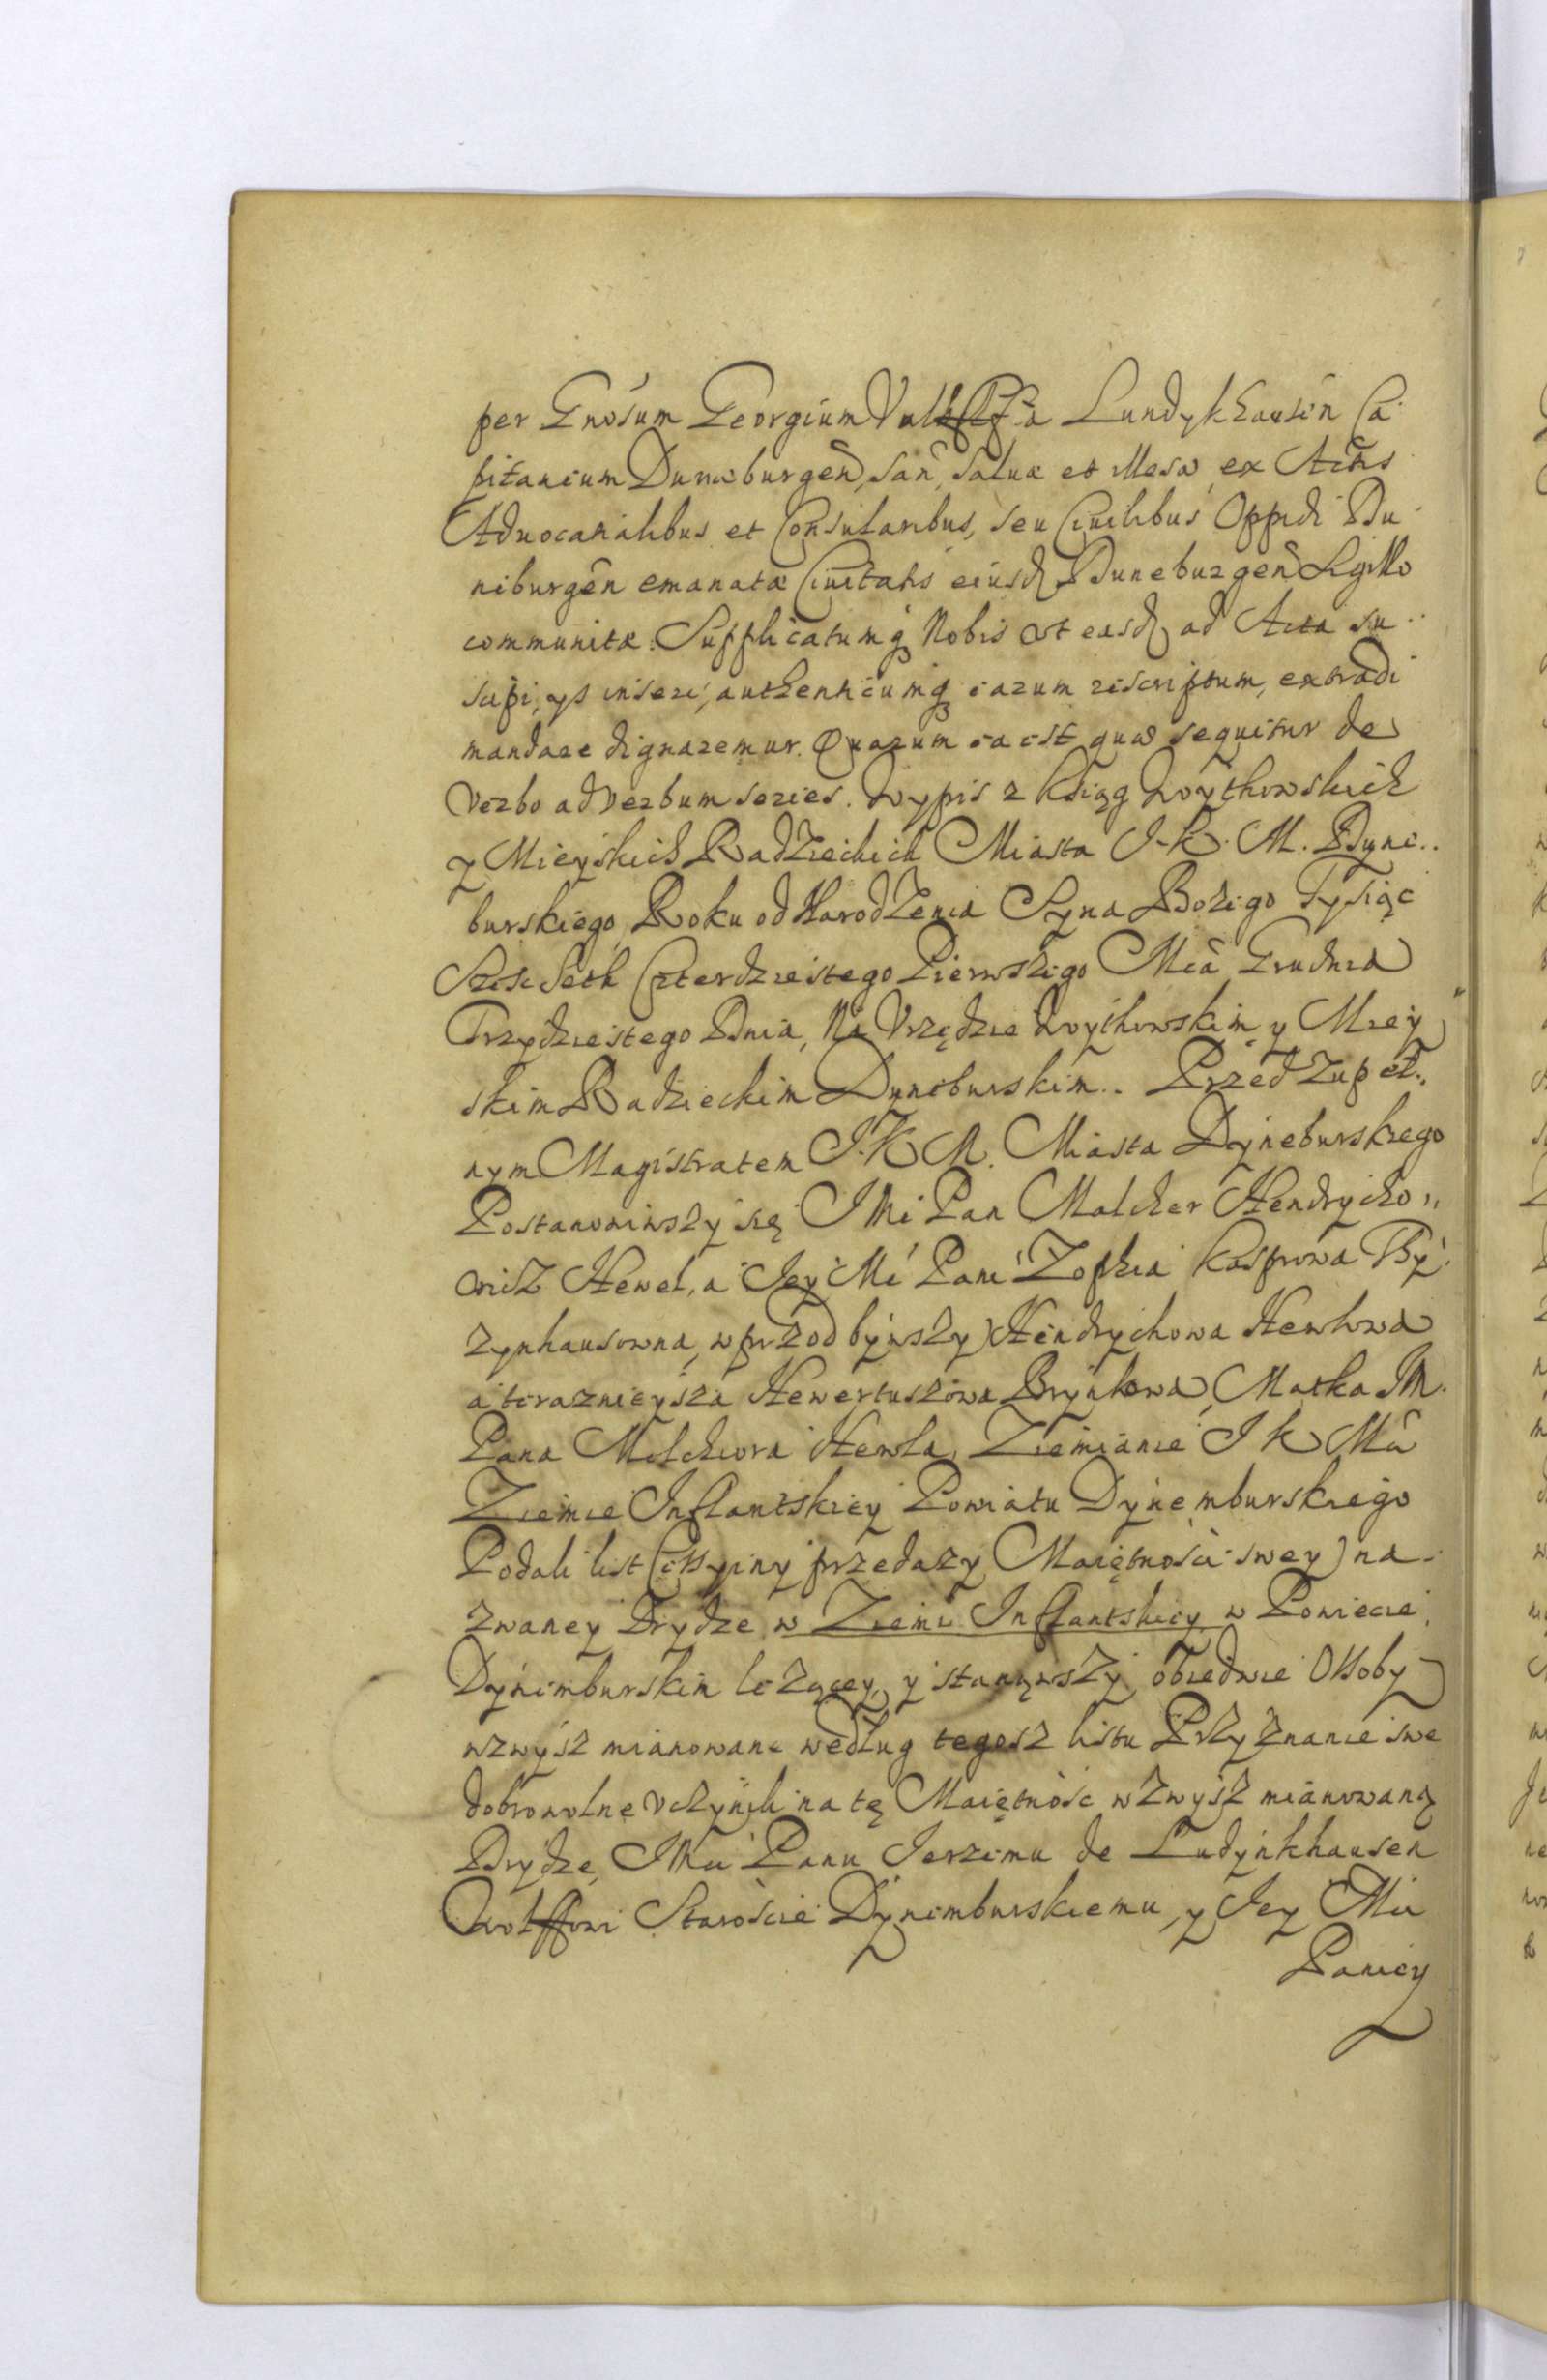 per Gnosum Georgium Vulkff a Lundykhausen Ca
pitaneum Duneburgen, san, saluæ et illesæ, ex Actis
Aduocatialibus et Consularibus, seu Ciuilibus Oppidi Du
niburgen emanatæ Ciuitatis eiusd Duneburgen Sigillo
communitæ. Supplicatumq Nobis Vt easd ad Acta su
scipi, ijs inseri, authenticumq earum rescriptum, extradi
mandare dignaremur. Quarum ea est quæ sequitur de
Verbo ad Verbum series. Wypis z Ksiąg Woythowskich
y Mieyskich Radzieckich Miasta J. K. M. Dyne..
burskiego, Roku od Narodzenia Syna Bożego Tysiąc
Szesc Seth Czterdziestego Pierwszego Mca Grudnia
Trzydziestego Dnia, Na Vrzędzie Woythowskim y Miey
skim Radzieckim Dyneburskim.. Przed zupeł..
nym Magistratem J. K. M. Miasta Dyneburskiego
Postanowiwszy się JMć Pan Malcher Hendrycho,,
wicz Hewel, a Jey Mć Pani Zophia Kasprowa Ty
zynhausowna, wprzod bywszy Hendrychowa Hewlowa
a teraznieysza Hewertuszowa Brynkowa, Matka JM.
Pana Melchiora Hewla, Ziemianie J K Mci
Ziemie Inflantskiey Powiatu Dynemburskiego
Podali list Cessyiny przedazy Maiętności swey na
zwaney Drydze w Ziemi Inflantskiey w Powiecie
Dynemburskim leżącey, y stanąwszy obiedwie Ossoby
wzwysz mianowane według tegosz listu Przyznanie swe
dobrowolne vczynili na tę Maiętność wzwysz mianowaną
Drydzę, JMci Panu Jerzemu de Ludynkhausen
Wolffowi Staroście Dynemburskiemu, y Jey Mci
Paniey